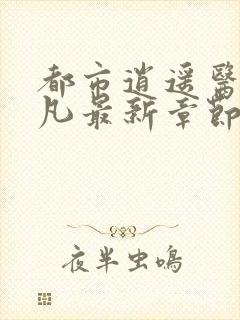 都市逍遥醫
凡最新章節
夜半虫鳴